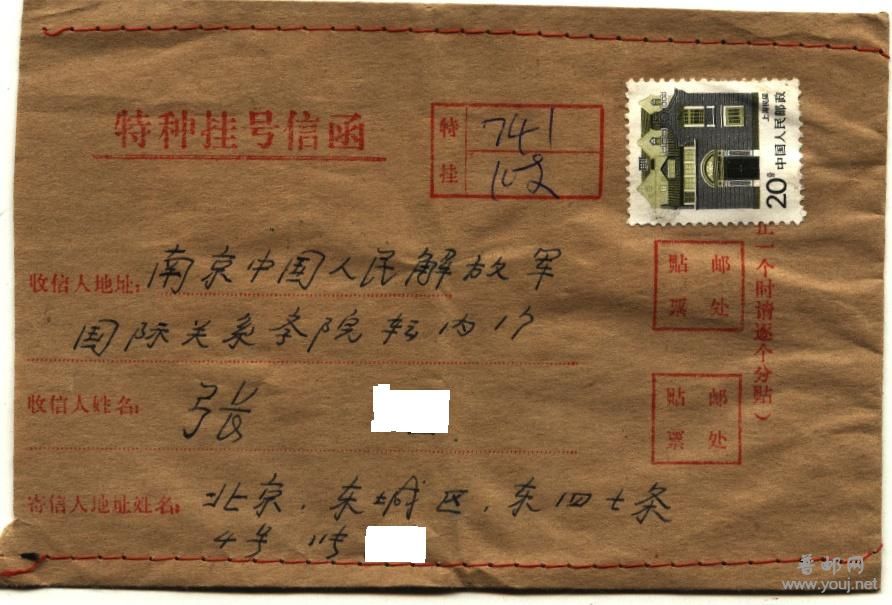 特种挂号信函
特 741
挂 10支
上海民居
中国人民邮政
20分
收信人地址: 南京中国人民解放军
国际关系学院转内17
收信人姓名: 张
寄信人地址姓名: 北京.东城区.东四七条
4号
正一个时请逐个分贴)
贴 邮
票 处
贴 邮
票 处
普邮网
www.youj.net